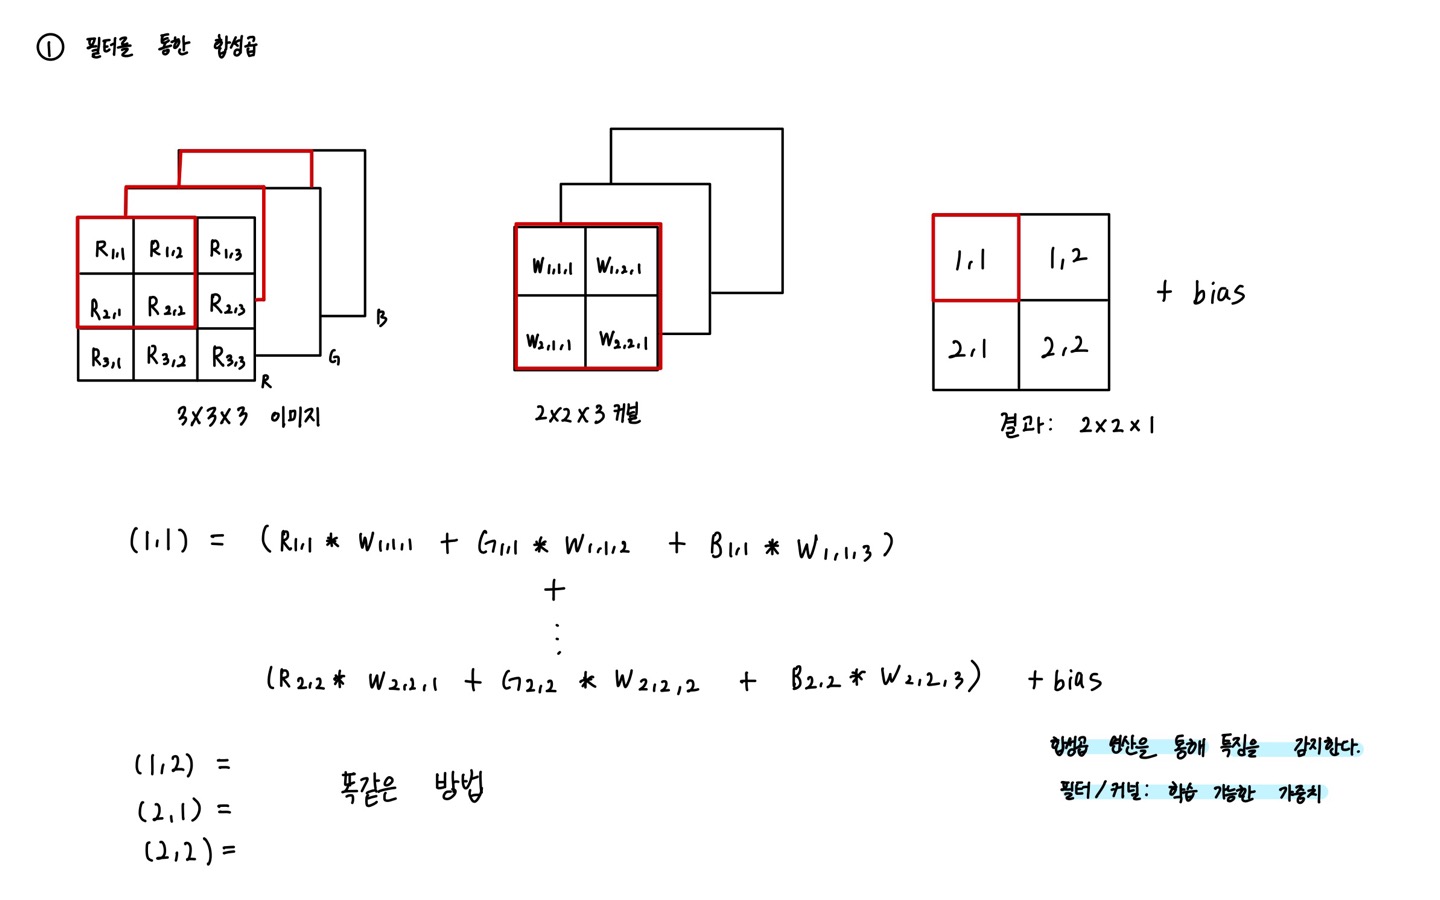 ① 필터를 통한 합성곱
R1,1 R1,2 R1,3
R2,1 R2,2 R2,3
R3,1 R3,2 R3,3
R
G
B
3x3x3 이미지
W1,1,1 W1,2,1
W2,1,1 W2,2,1
2x2x3 커널
1,1 1,2
2,1 2,2
+ bias
결과: 2x2x1
(1,1) = (R1,1 * W1,1,1 + G1,1 * W1,1,2 + B1,1 * W1,1,3)
+
⋮
(R2,2 * W2,2,1 + G2,2 * W2,2,2 + B2,2 * W2,2,3) + bias
(1,2) =
(2,1) =
(2,2) =
똑같은 방법
합성곱 연산을 통해 특징을 감지한다.
필터/커널: 학습 가능한 가중치